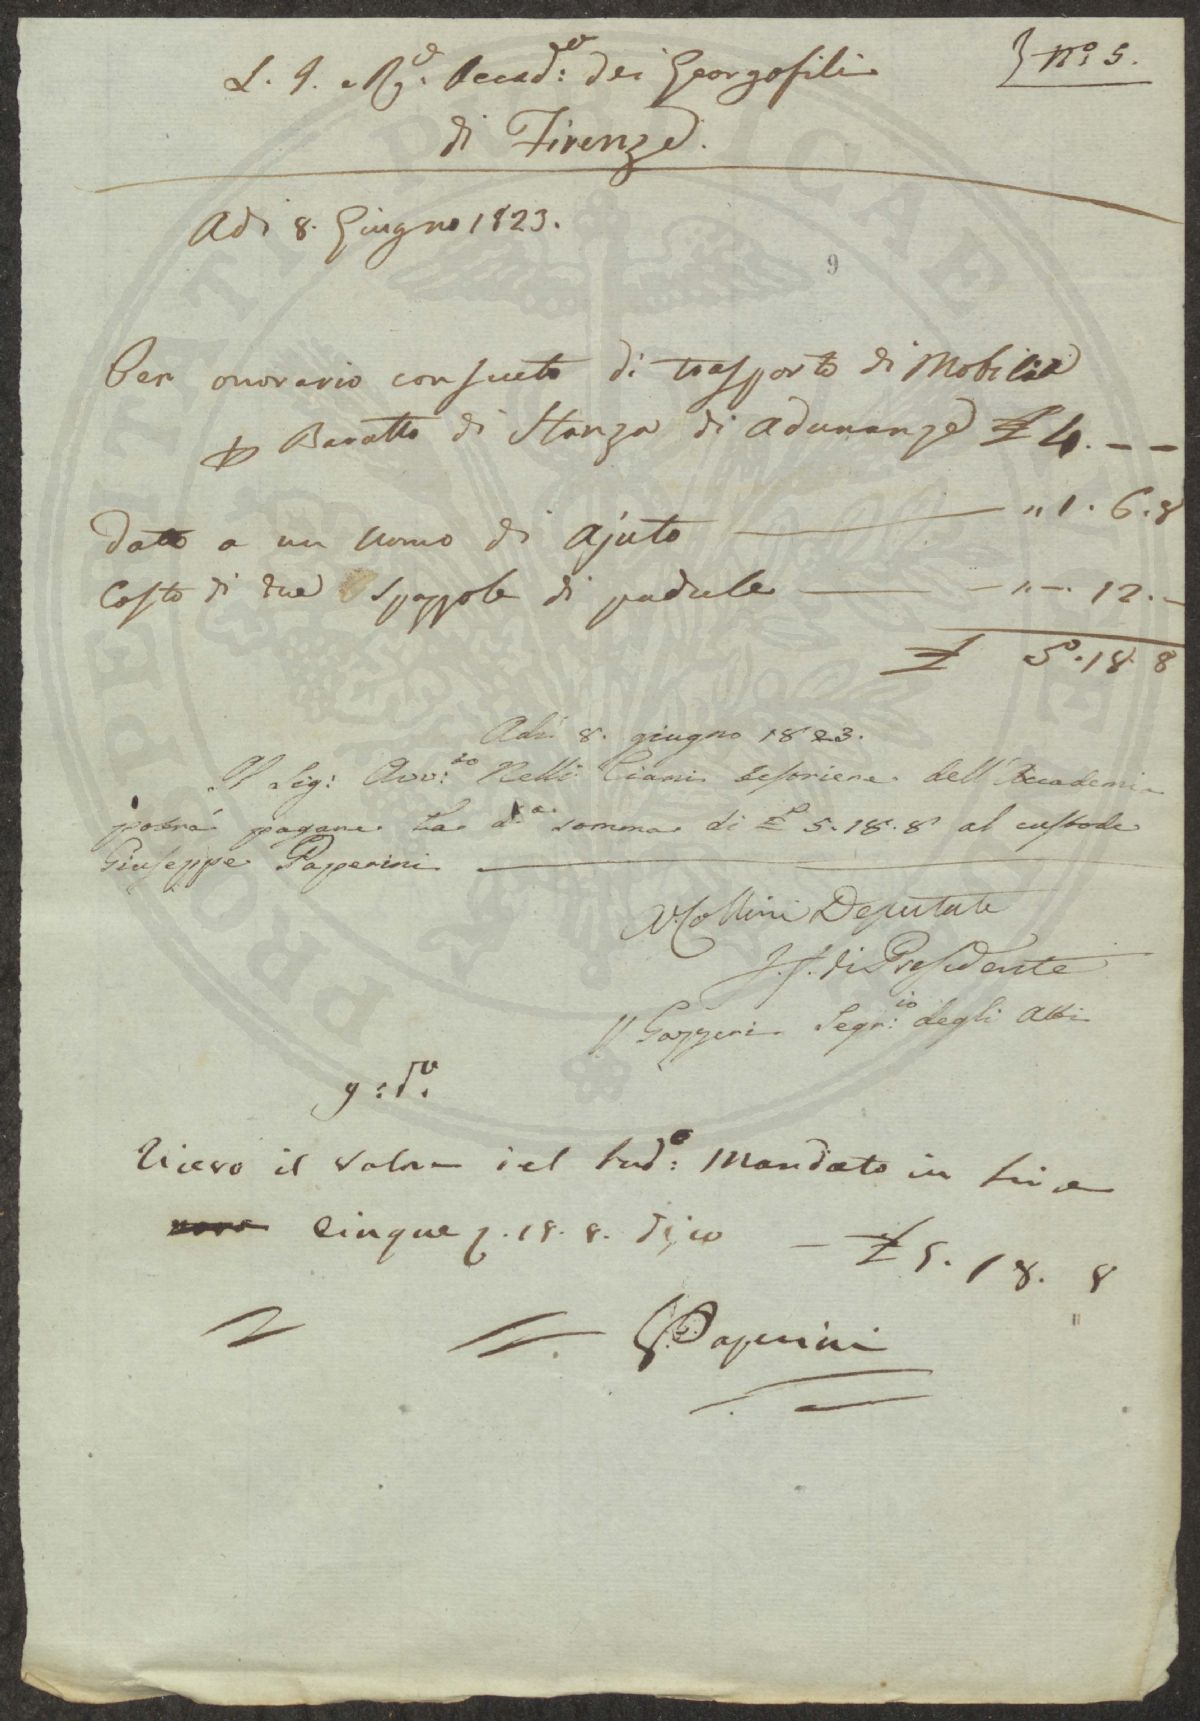 N.º 5.
L. I. e R.e Accad:a dei Georgofili
di Firenze.
Adi 8. Giugno 1823.
9
Per onorario consueto di trasporto di Mobilia
p Baratto di Stanza di Adunanze £ 4. — —
Dato a un uomo di Ajuto — " 1. 6. 8
Costo di due Spazzole di padule — " —. 12. —
£ 5. 18. 8
Adì 8. giugno 1823.
Il Sig: Avv:to Nelli Ciani Tesoriere dell'Accademia
potrà pagare la d.a somma di £ 5. 18. 8 al custode
Giuseppe Papperini
V. Collini Deputato
f.f. di Presidente
Gazzeri Segr:io degli Atti
g: d.o
Ricevo il valore del sud.o: Mandato in Lire
cinque 18. 8. dico — £ 5. 18. 8
G. Paperini
PROSPERITATI PUBLICAE